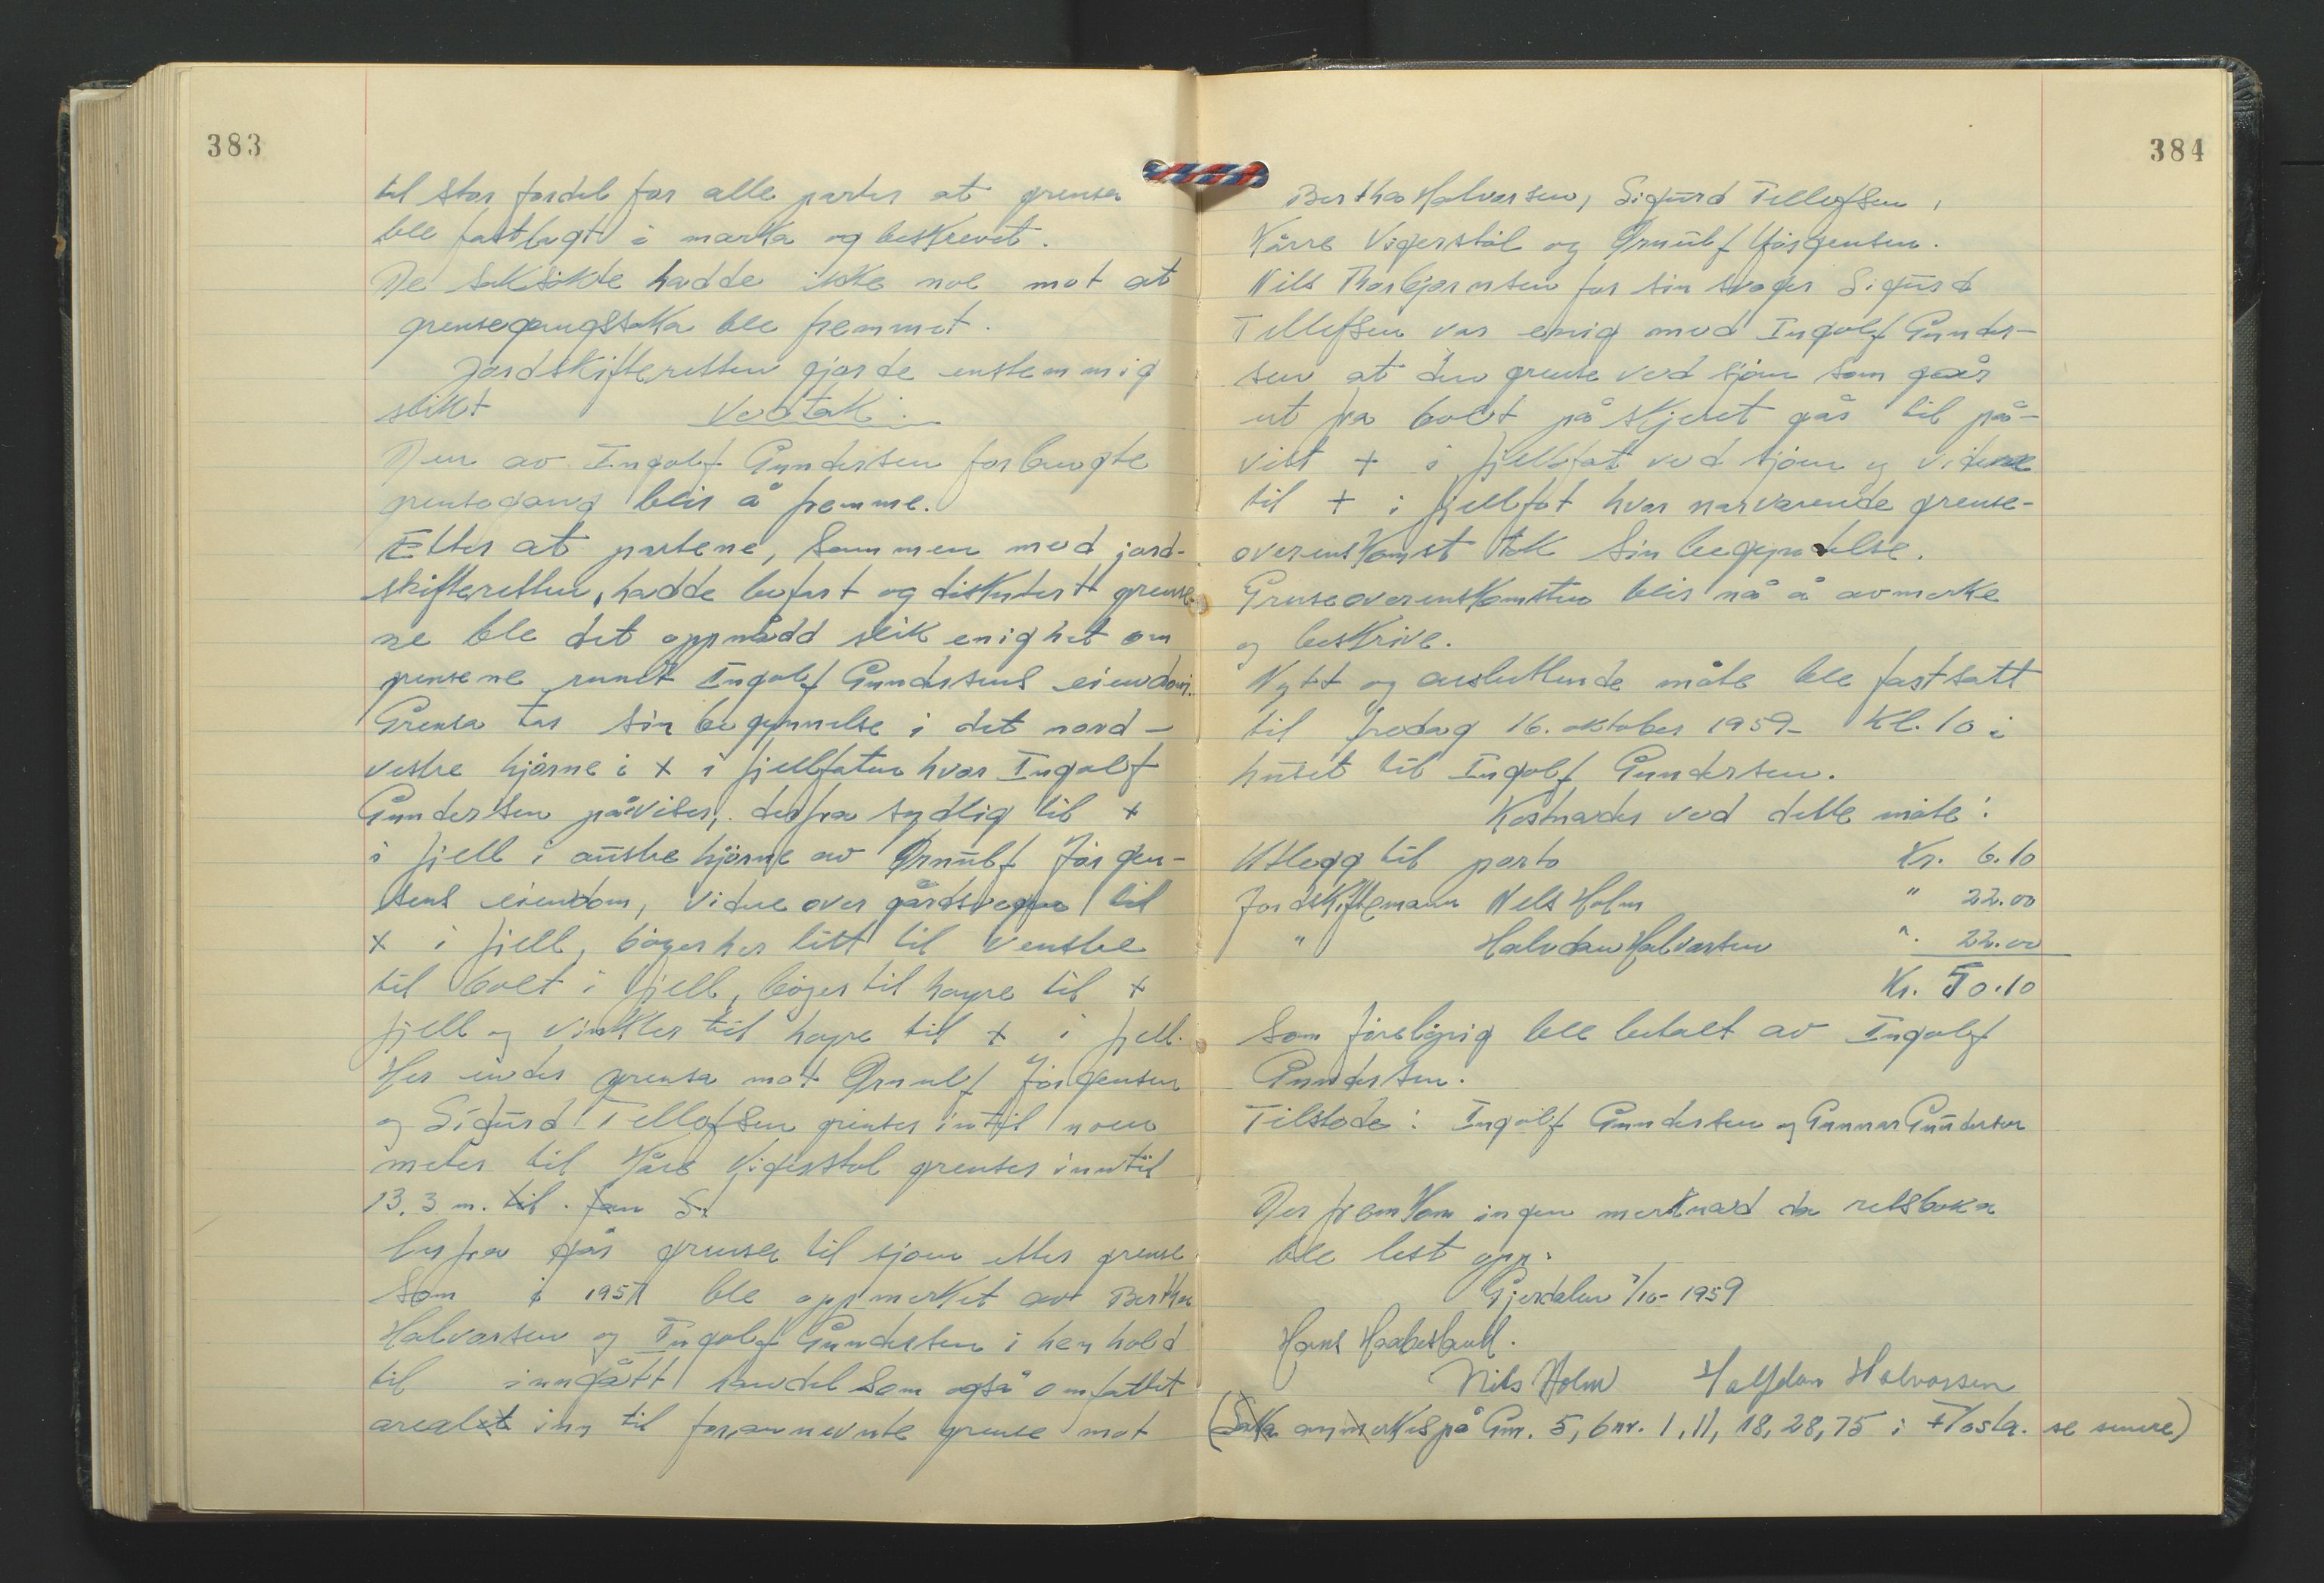 383
til stor fordel for alle parter at grensa
ble fastlagt i marka og beskrevet.
De saksøkte hadde ikke noe mot at
grensegangssaka ble fremmet.
Jordskifteretten gjorde enstemmig
slikt Vedtak:
Den av Ingolf Gundersen forlangte
grensegang blir å fremme.
Etter at partene, sammen med jord-
skifteretten, hadde befart og diskutert grense
ne ble det oppnådd slik enighet om
grensene rundt Ingolf Gundersens eiendom.
Grensa tar sin begynnelse i det nord-
vestre hjørne i x i fjellfoten hvor Ingolf
Gundersen påviser, derfra sydlig til x
i fjell i austre hjørne av Ørnulf Jørgen-
sens eiendom, vidre over gårdsvegen til
x i fjell, bøyer her litt til venstre
til bolt i fjell, bøyer til høyre til x
fjell og vinkler til høyre til x i fjell.
Her ender grensa mot Ørnulf Jørgensen
og Sigurd Tellefsen grenser inntil noen
meter til Kåre Vigerstøl grenser inntil
13.3 m. til . fem S.
herfra går grensa til sjøen etter grense
som i 1957 ble oppmerket av Bertha
Halvorsen og Ingolf Gundersen i henhold
til inngått handel som også omfattet
arealet inn til forannevnte grense mot
384
Bertha Halvorsen, Sigurd Tellefsen,
Kårre Vigerstøl og Ørnulf Jørgensen.
Nils Thorbjørnsen for sin svoger Sigurd
Tellefsen var enig med Ingolf Gunder-
sen at den grense ved sjøen som går
ut fra bolt på skjeret går til på-
vist + i fjellfot ved sjøen og videre
til + i fjellfot hvor nærværende grense-
overenskomst tok sin begynnelse.
Grenseoverenskomsten blir nå å avmerke
og beskrive.
Nytt og avsluttende møte ble fastsatt
til fredag 16. oktober 1959 - kl. 10 i
huset til Ingolf Gundersen.
Kostnader ved dette møte:
Utlegg til porto Kr. 6.10
Jordskiftemann Nils Holm " 22.00
" Halvdan Halvorsen " 22.00
Kr. 50.10
som foreløpig ble betalt av Ingolf
Gundersen.
Tilstede: Ingolf Gundersen og Gunnar Gundersen
Der fremkom ingen merknad da rettsboka
ble lest opp.
Gjerdalen 7/10-1959
Hans
Nils Holm Halfdan Halvorsen
(Saka anmerkes på Gnr. 5, bnr. 1, 11, 18, 28, 75 i Flosta. se senere)